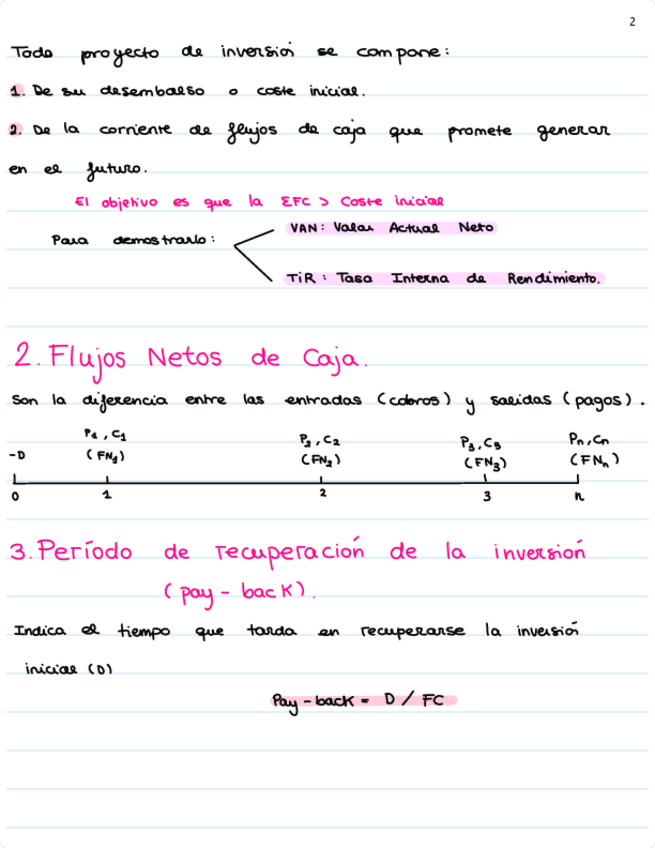 2
Todo proyecto de inversión se compone:
1. De su desembolso o coste inicial.
2. De la corriente de flujos de caja que promete generar
en el futuro.
El objetivo es que la ΣFC > Coste inicial
Para demostrarlo:
VAN: Valor Actual Neto
TiR: Tasa Interna de Rendimiento.
2. Flujos Netos de Caja.
Son la diferencia entre las entradas (cobros) y salidas (pagos).
-D P1, C1 (FN1) P2, C2 (FN2) P3, C3 (FN3) Pn, Cn (FNn)
0 1 2 3 n
3. Período de recuperación de la inversión
(pay-back).
Indica el tiempo que tarda en recuperarse la inversión
inicial (D)
Pay-back = D / FC